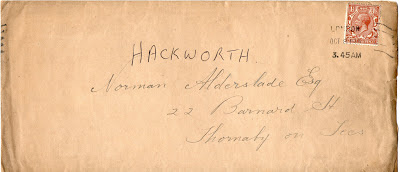 3.45AM
HACKWORTH.
Norman Alderslade Esq
22 Barnard St
Thornaby on Tees